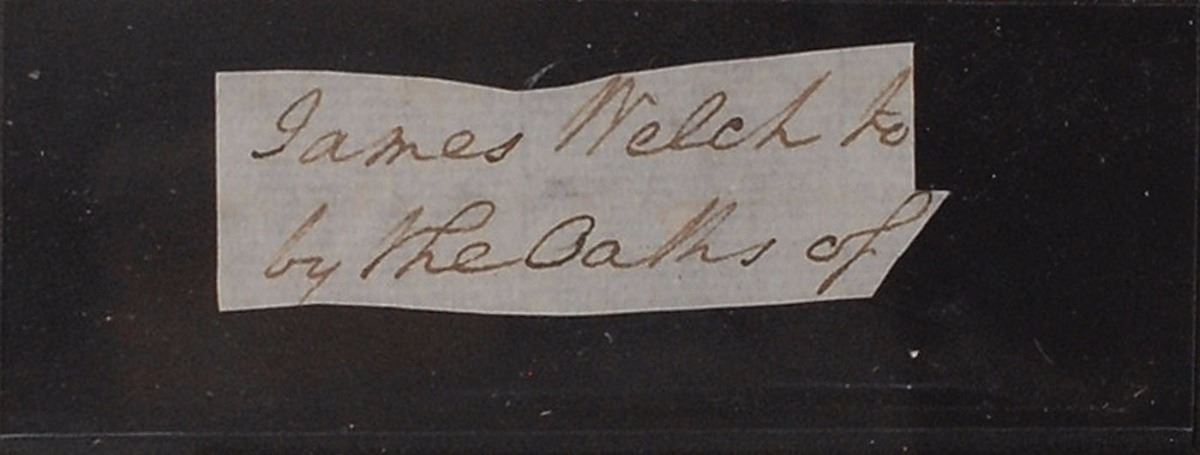 James Welch to
by the Oaths of